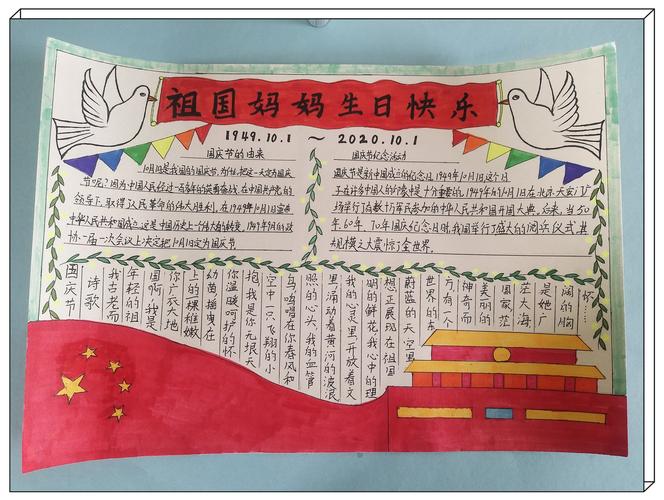 祖国妈妈生日快乐
1949.10.1 ~ 2020.10.1
国庆节的由来
10月1日是我国的国庆节,为什么把这一天定为国庆
节呢?因为中国人民经过一百多年的英勇奋战,在中国共产党的
领导下,取得了人民革命的伟大胜利,在1949年10月1日宣告
中华人民共和国成立,这是中国历史上一个伟大的转变,1949年9月的政
协一届一次会议上决定把10月1日定为国庆节
国庆节纪念活动
国庆节是新中国成立的纪念日,1949年10月1日这个日
子在许多中国人的印象是十分重要的,1949年的10月1日在北京天安门广
场举行了有数十万军民参加的中华人民共和国开国大典。后来,当50
年、60年、70年国庆纪念日时,我国举行了盛大的阅兵仪式,其
规模之大震惊了全世界.
国庆节
诗歌
我古老而
年轻的祖
国啊,我是
你广袤大地
上的稞稚嫩
幼苗摇曳在
你温暖呵护的怀
抱,我是你无垠天
空中一只飞翔的小
鸟鸣唱在你春风和
照的心头,我的血管
里涌动着黄河的波浪
我的心灵里开放着文
明的鲜花我心中的理
想正展现在祖国
蔚蓝的天空里
世界的东
方有一个
神奇而
美丽的
国家茫
茫大海
是她广
阔的胸
怀……